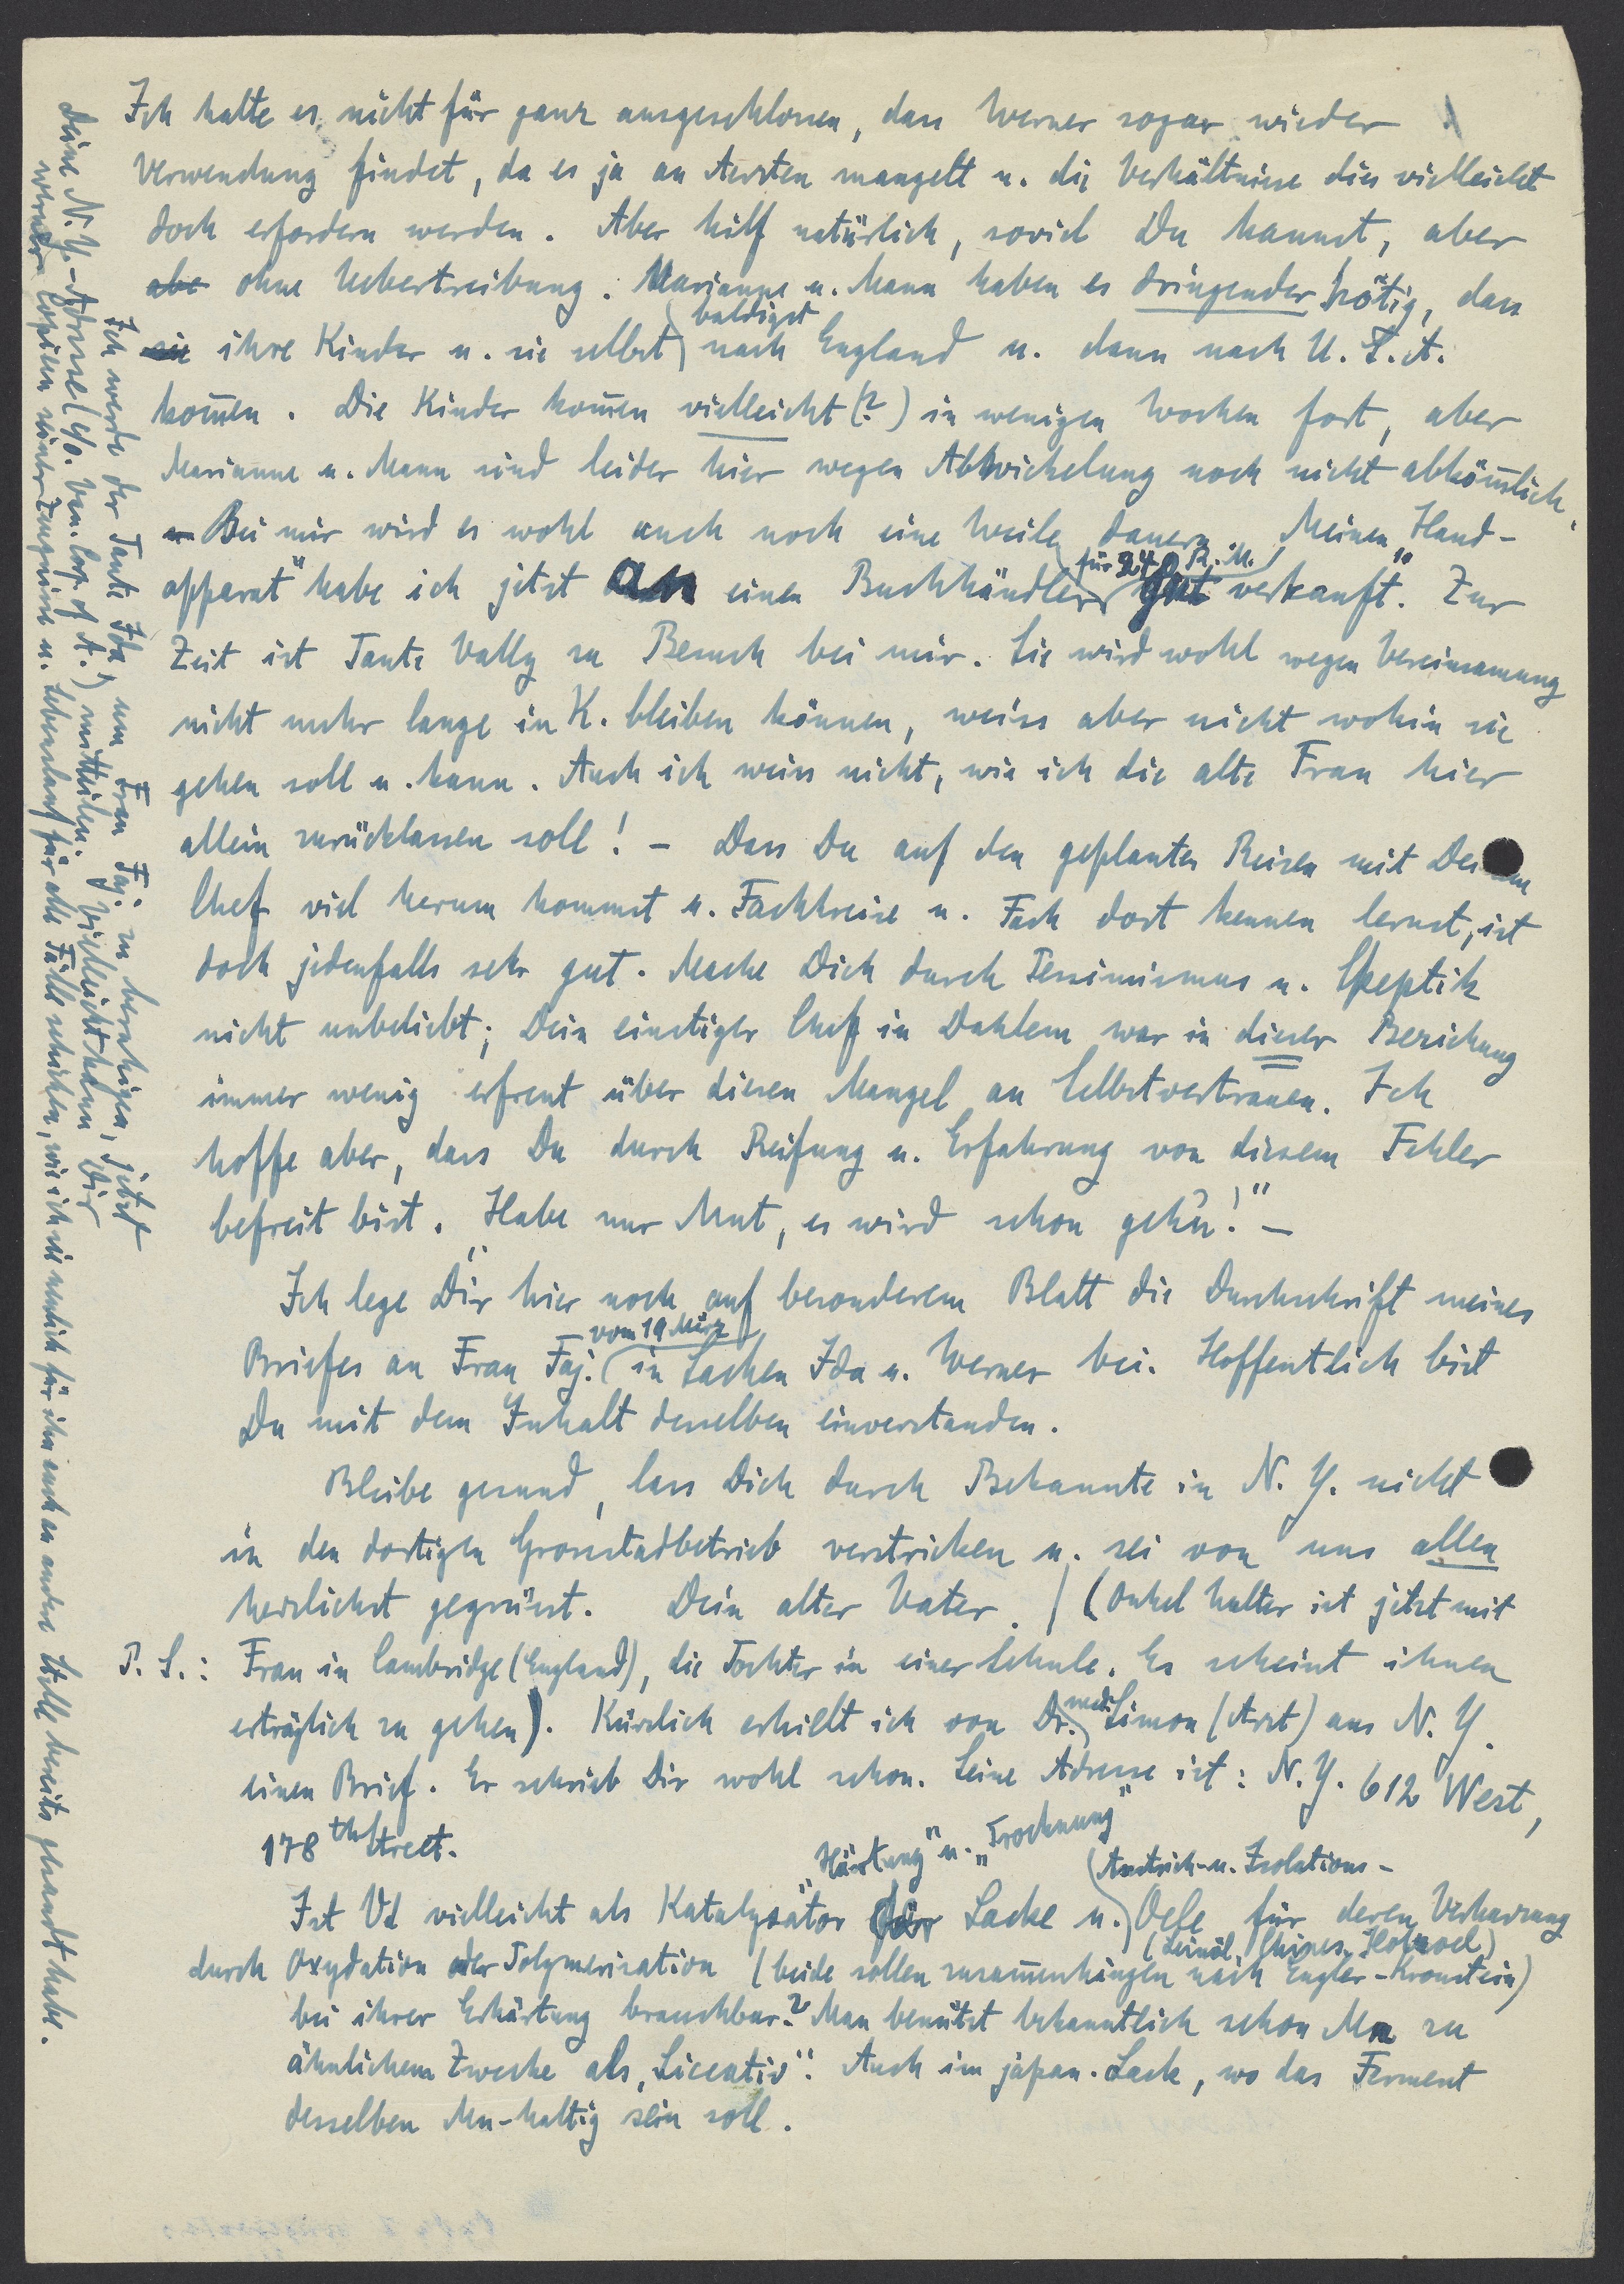 Ich halte es nicht für ganz ausgeschlossen, dass Werner sogar wieder
Verwendung findet, da es ja an Aerzten mangelt u. die Verhältnisse dies vielleicht
doch erfordern werden. Aber hilf natürlich, soviel Du kannst, aber
abe ohne Uebertreibung. Marianne u. Mann haben es dringender nötig, dass
sie ihre Kinder u. sie selbst baldigst nach England u. dann nach U.S.A.
kom̄en. Die Kinder kom̄en vielleicht (?) in wenigen Wochen fort, aber
Marianne u. Mann sind leider hier wegen Abwickelung noch nicht abköm̄lich.
Bei mir wird es wohl auch noch eine Weile dauern. Meinen „Hand-
apparat" habe ich jetzt an einen Buchhändler für 240 R.M. gut verkauft. Zur
Zeit ist Tante Vally zu Besuch bei mir. Sie wird wohl wegen Vereinsamung
nicht mehr lange in K. bleiben können, weiss aber nicht wohin sie
gehen soll u. kann. Auch ich weiss nicht, wie ich die alte Frau hier
allein zurücklassen soll! – Dass Du auf den geplanten Reisen mit Deinem
Chef viel herum kommst u. Fachkreise u. Fach dort kennen lernst, ist
doch jedenfalls sehr gut. Mache Dich durch Pessimismus u. Skeptik
nicht unbeliebt; Dein einstiger Chef in Dahlem war in dieser Beziehung
immer wenig erfreut über diesen Mangel an Selbstvertrauen. Ich
hoffe aber, dass Du durch Reifung u. Erfahrung von diesem Fehler
befreit bist. „Habe nur Mut, es wird schon geh'n!" –
Ich lege Dir hier noch auf besonderem Blatt die Durchschrift meines
Briefes an Frau Faj. vom 19 März in Sachen Ida u. Werner bei. Hoffentlich bist
Du mit dem Inhalt desselben einverstanden.
Bleibe gesund, lass Dich durch Bekannte in N.Y. nicht
in den dortigen Grosstadbetrieb verstricken u. sei von uns allen
herzlichst gegrüsst. Dein alter Vater. / (Onkel Walter ist jetzt mit
P.S.: Frau in Cambridge (England), die Tochter in einer Schule. Es scheint ihnen
erträglich zu gehen). Kürzlich erhielt ich von Dr. med. Simon (Arzt) aus N.Y.
einen Brief. Er schrieb Dir wohl schon. Seine Adresse ist: N.Y. 612 West,
178th Street.
„Härtung" u. „Trocknung"
(Anstrich- u. Isolations-
Ist Vd vielleicht als Katalysator für Lacke u. Oele für deren Verharzung
(Leinöl, Chines. Holzoel)
durch Oxydation oder Polymerisation (beide sollen zusam̄enhängen nach Engler-Kronstein)
bei ihrer Erhärtung brauchbar? Man benützt bekanntlich schon Mn zu
ähnlichem Zwecke als „Siccativ". Auch im japan. Lack, wo das Ferment
desselben Mn-haltig sein soll.
Ich werde der Tante Ida, um Frau Faj. zu beruhigen, jetzt
deine N.Y.-Adresse (c/o. Van. Corp. of A.) mitteilen. Vielleicht kann Dir
Werner Copien seiner Zeugnisse u. Lebenslauf für alle Fälle schicken, wie ich sie neulich für ihn auch an andere Stelle bereits gesandt habe.